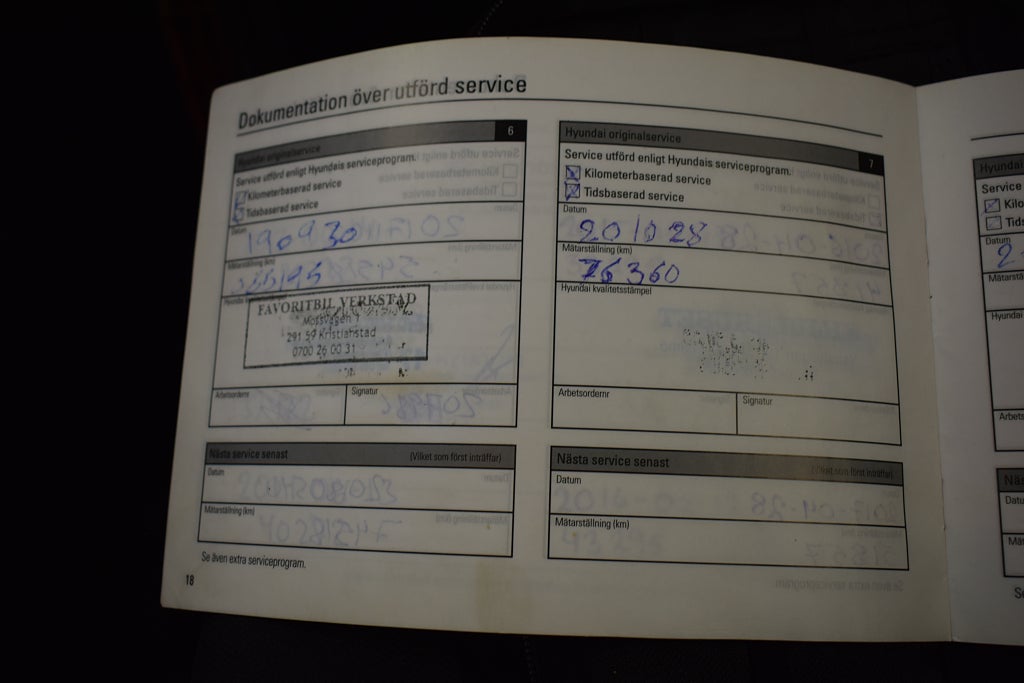 Dokumentation över utförd service
6
Hyundai originalservice
Service utförd enligt Hyundais serviceprogram.
Kilometerbaserad service
Tidsbaserad service
Datum
190930
Mätarställning (km)
FAVORITBIL VERKSTAD
Mossvägen 7
291 59 Kristianstad
0700 26 00 31
Arbetsordernr
Signatur
Nästa service senast
(Vilket som först inträffar)
Datum
Mätarställning (km)
Se även extra serviceprogram.
18
Hyundai originalservice
7
Service utförd enligt Hyundais serviceprogram.
Kilometerbaserad service
Tidsbaserad service
Datum
201028
Mätarställning (km)
76360
Hyundai kvalitetsstämpel
Arbetsordernr
Signatur
Nästa service senast
(Vilket som först inträffar)
Datum
Mätarställning (km)
Hyundai
Service
Kilo
Tids
Datum
2
Mätarstä
Hyundai
Arbets
Näs
Datu
Mä
Se